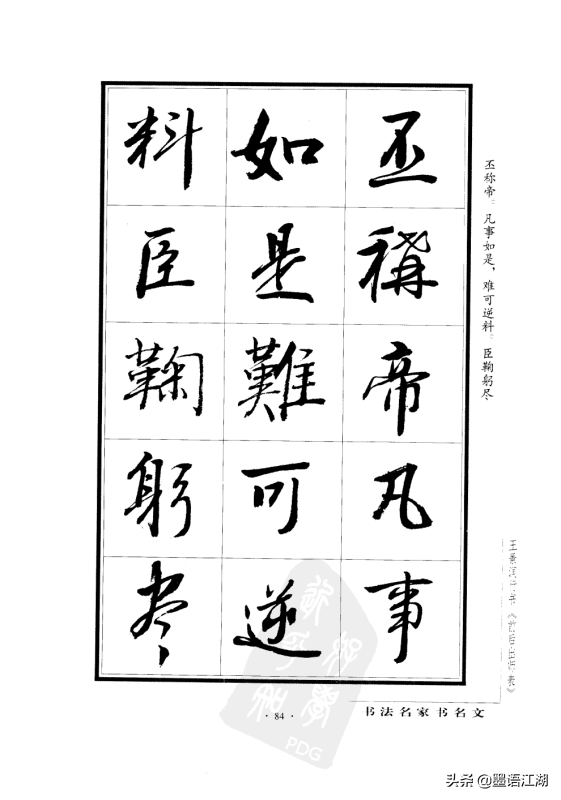 丕稱帝凡事
如是難可逆
料臣鞠躬盡
丕称帝。凡事如是，难可逆料。臣鞠躬尽
王景鸿行书《前后出师表》
·84·
书法名家书名文
PDG
头条@墨语江湖